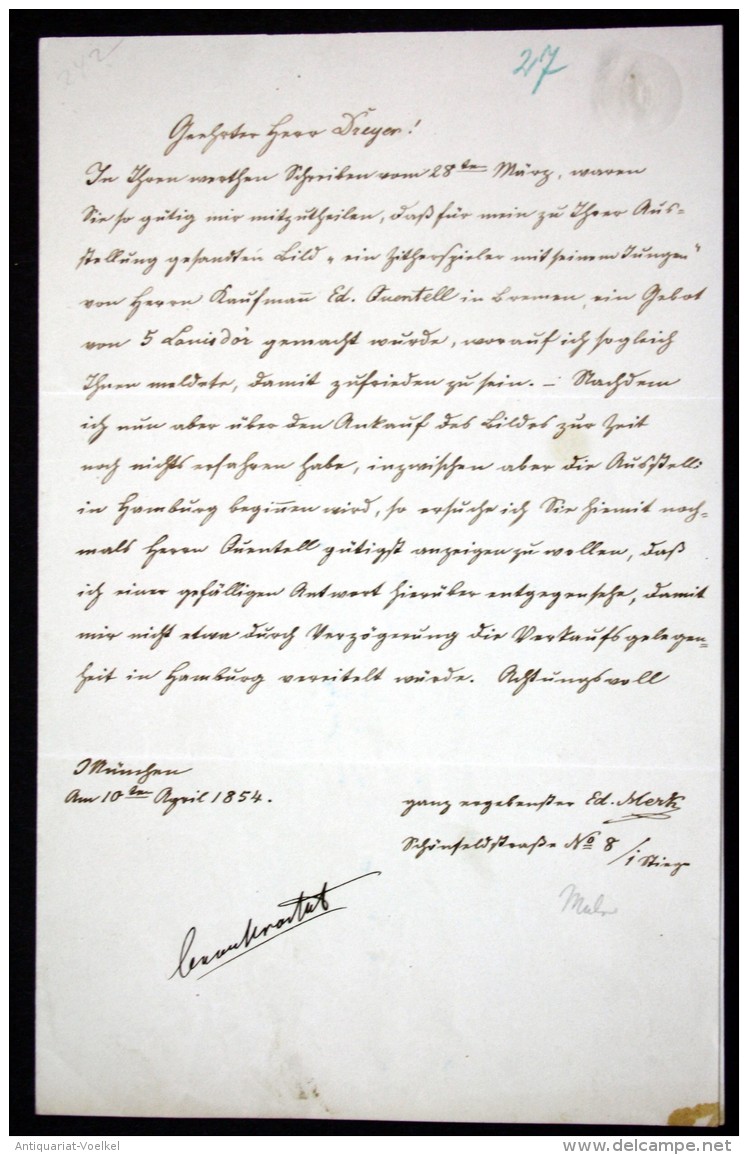 242
27
Geehrter Herr Dreyer!
In Ihren werthen Schreiben vom 28ten März, waren
Sie so gütig mir mitzutheilen, daß für mein zu Ihrer Aus-
stellung gesandten Bild „ein Zitherspieler mit seinem Jungen"
von Herrn Kaufmann Ed. Quentell in Bremen, ein Gebot
von 5 Louisdór gemacht wurde, worauf ich sogleich
Ihnen meldete, damit zufrieden zu sein. – Nachdem
ich nun aber über den Ankauf des Bildes zur Zeit
noch nichts erfahren habe, inzwischen aber die Ausstell:
in Hamburg beginnen wird, so ersuche ich Sie hiemit noch-
mals Herrn Quentell gütigst anzeigen zu wollen, daß
ich einer gefälligen Antwort hierüber entgegensehe, damit
mir nicht etwa durch Verzögerung die Verkaufsgelegen-
heit in Hamburg vereitelt würde. Achtungsvoll
München
Am 10ten April 1854.
ganz ergebenster Ed. Merk
Schönfeldstraße No 8/1 Stieg
Maler
beantwortet
Antiquariat-Voelkel
delcampe.net